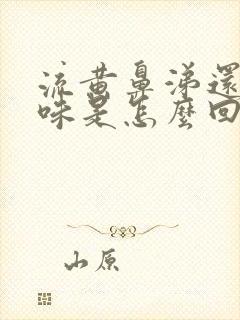 流黃鼻涕還
味是怎麼回
山原